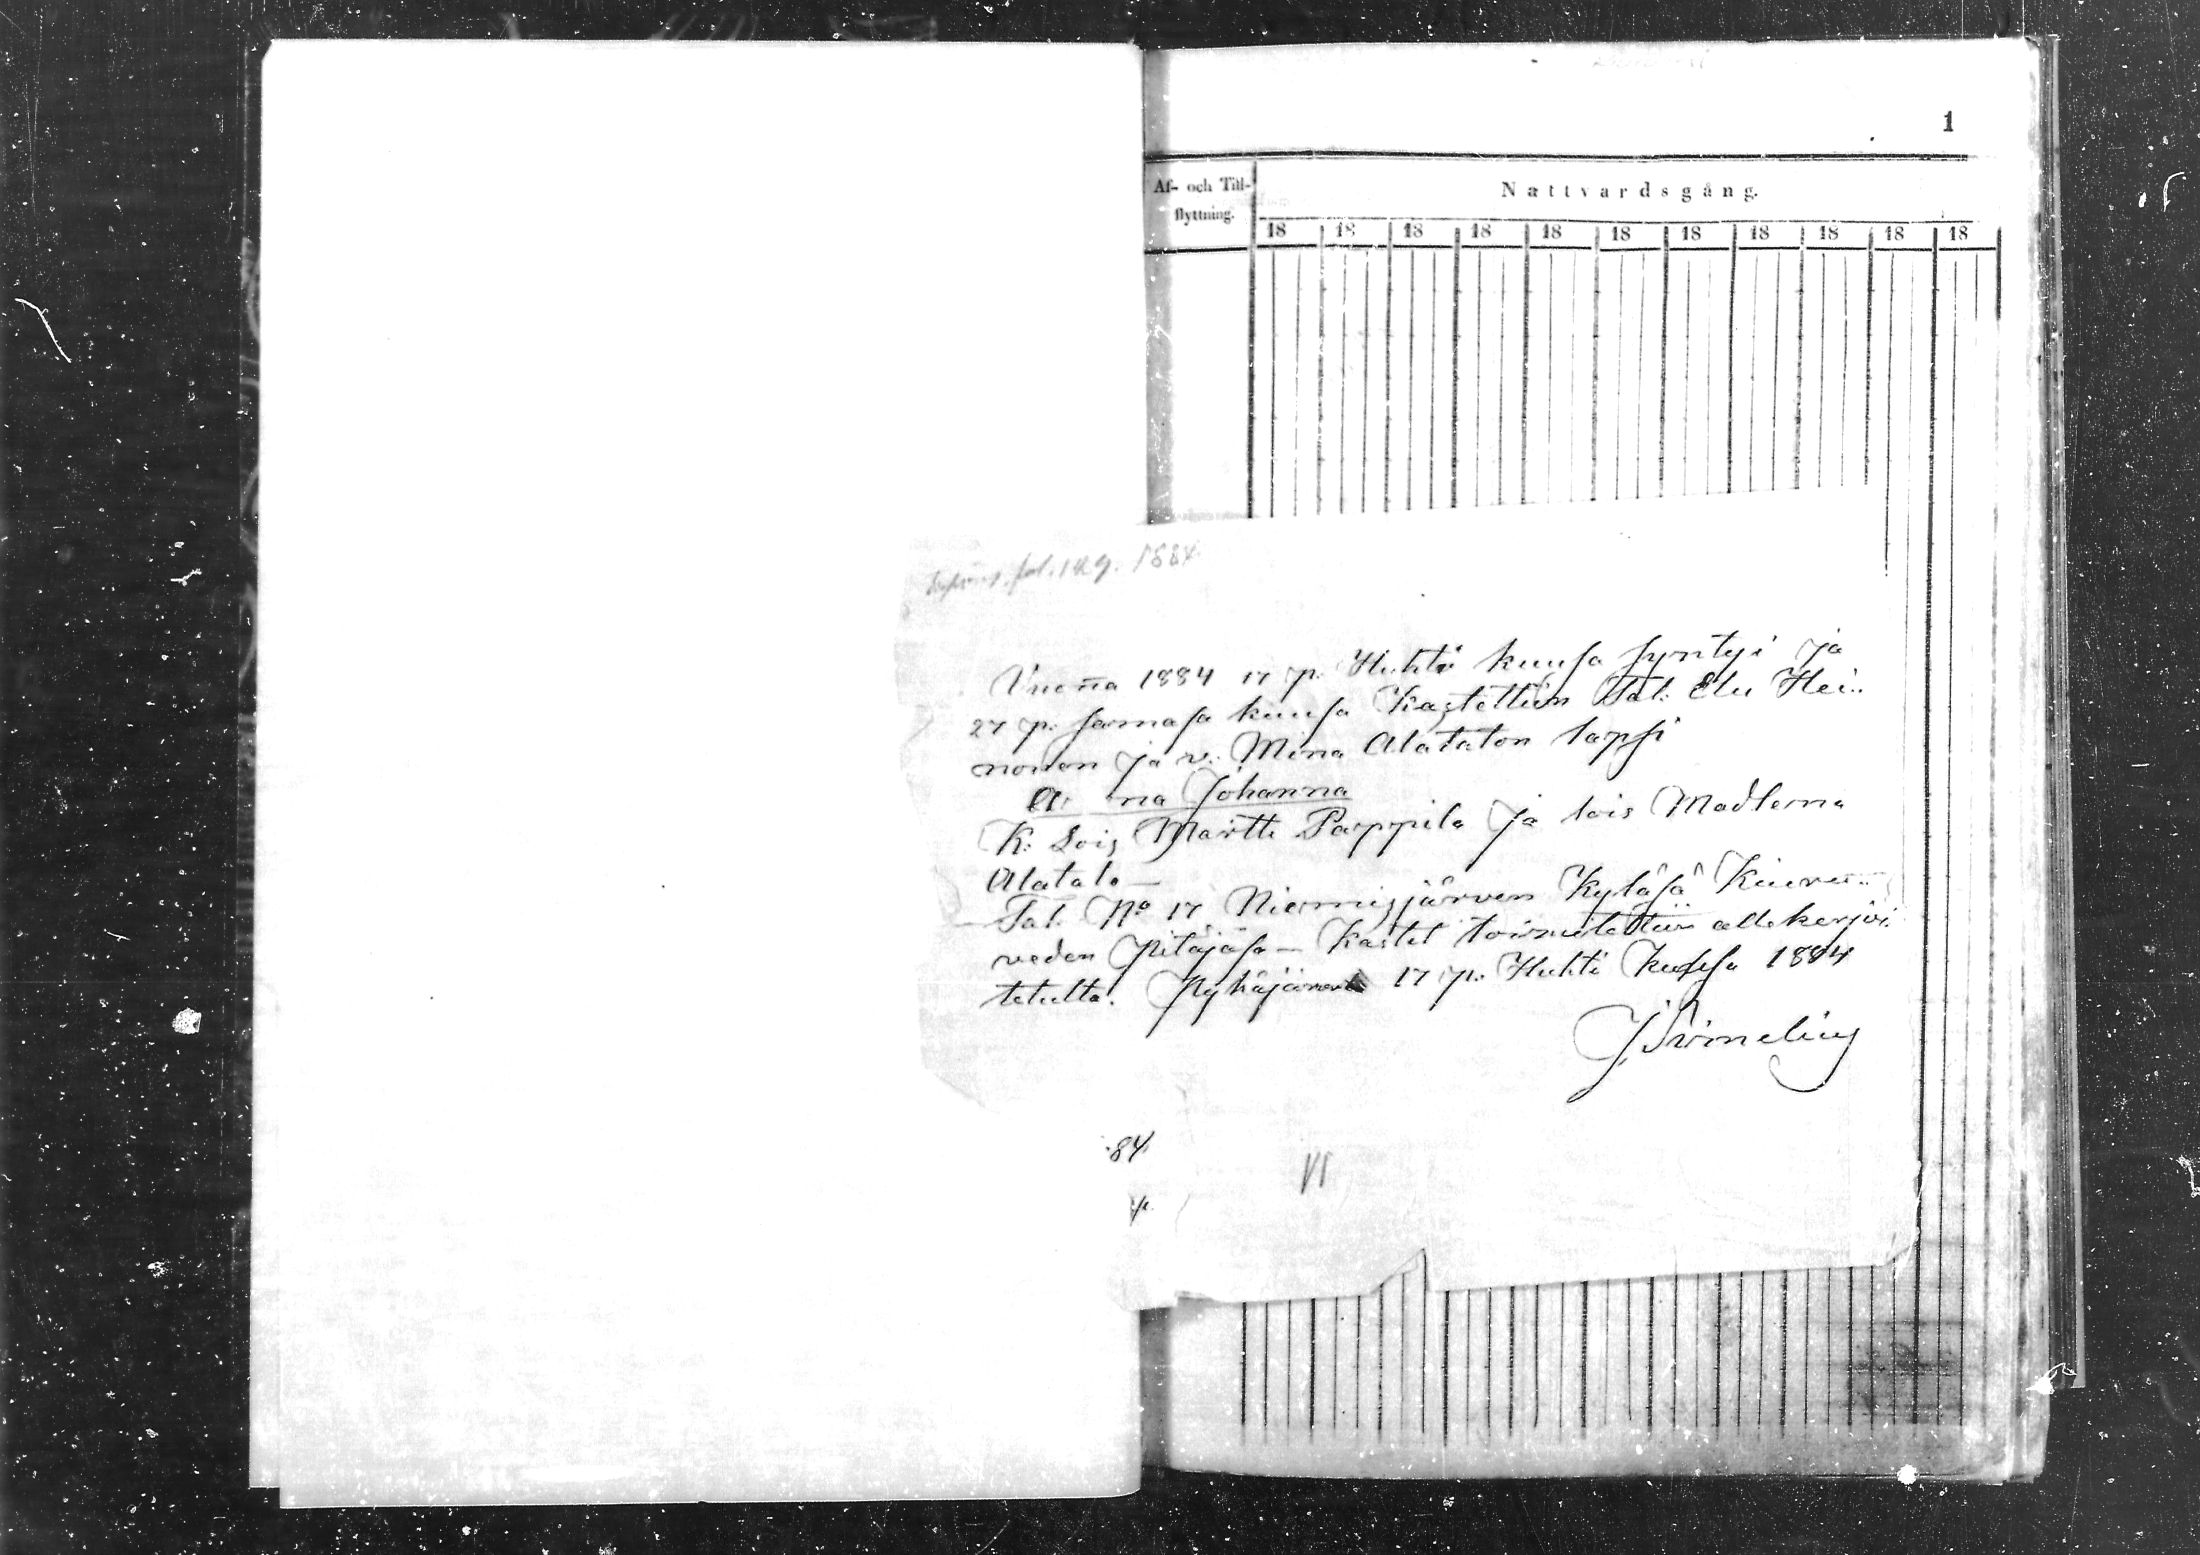 1
Af- och Till-
flyttning.
Nattvardsgång.
18 18 18 18 18 18 18 18 18 18 18
fol. 129. 1884
Vuonna 1884 17 p. Huhti kuusa syntyi ja
27 p. samasa kuusa Kastettiin Tal: Elu Hei-
nonen ja v. Mina Alatalon lapsi
na Johanna
K: Lois Martti Parppila ja lois Madlena
Alatalo —
Tal. No 17 Niemisjärven Kyläsä
veden pitäjäsä — Kastet toimitettiin allekirjoi-
tetulta. Pyhäjärvi 17 p. Huhti Kuusa 1884
84
p.
VI